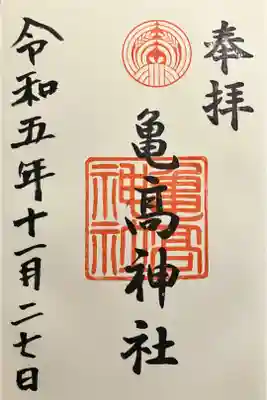 奉拝
亀髙神社
亀高神社
令和五年十一月二七日